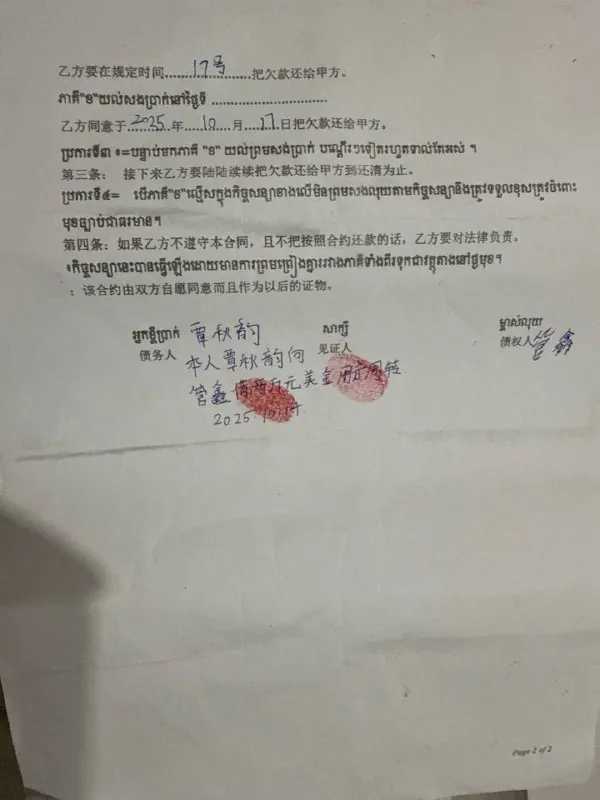 乙方要在规定时间......17号......................把欠款还给甲方。
ភាគី"ខ"យល់សងប្រាក់នៅថ្ងៃទី ..............................
乙方同意于..2025..年...10...月...17..日把欠款还给甲方。
ប្រការទី៣ ៖=បន្ទាប់មកភាគី "ខ" យល់ព្រមសង់ប្រាក់ បណ្តើរៗទៀតរហូតទាល់តែអស់ ។
第三条： 接下来乙方要陆陆续续把欠款还给甲方到还清为止。
ប្រការទី៤= បើភាគី"ខ"ល្មើសក្នុងកិច្ចសន្យាខាងលើមិនព្រមសងលុយតាមកិច្ចសន្យានឹងត្រូវទទួលខុសត្រូវចំពោះ
មុខច្បាប់ជាធរមាន។
第四条：如果乙方不遵守本合同，且不把按照合约还款的话，乙方要对法律负责。
កិច្ចសន្យានេះបានធ្វើឡើងដោយមានការព្រមព្រៀងគ្នារវាងភាគីទាំងពីរទុកជាវត្ថុតាងនៅថ្ងៃមុខ។
：该合约由双方自愿同意而且作为以后的证物。
អ្នកខ្ចីប្រាក់ 覃秋韵 សាក្សី ម្ចាស់លុយ
债务人 见证人 债权人 管鑫
本人覃秋韵向
管鑫借两万元美金用于周转
2025.10.17.
Page 2 of 2